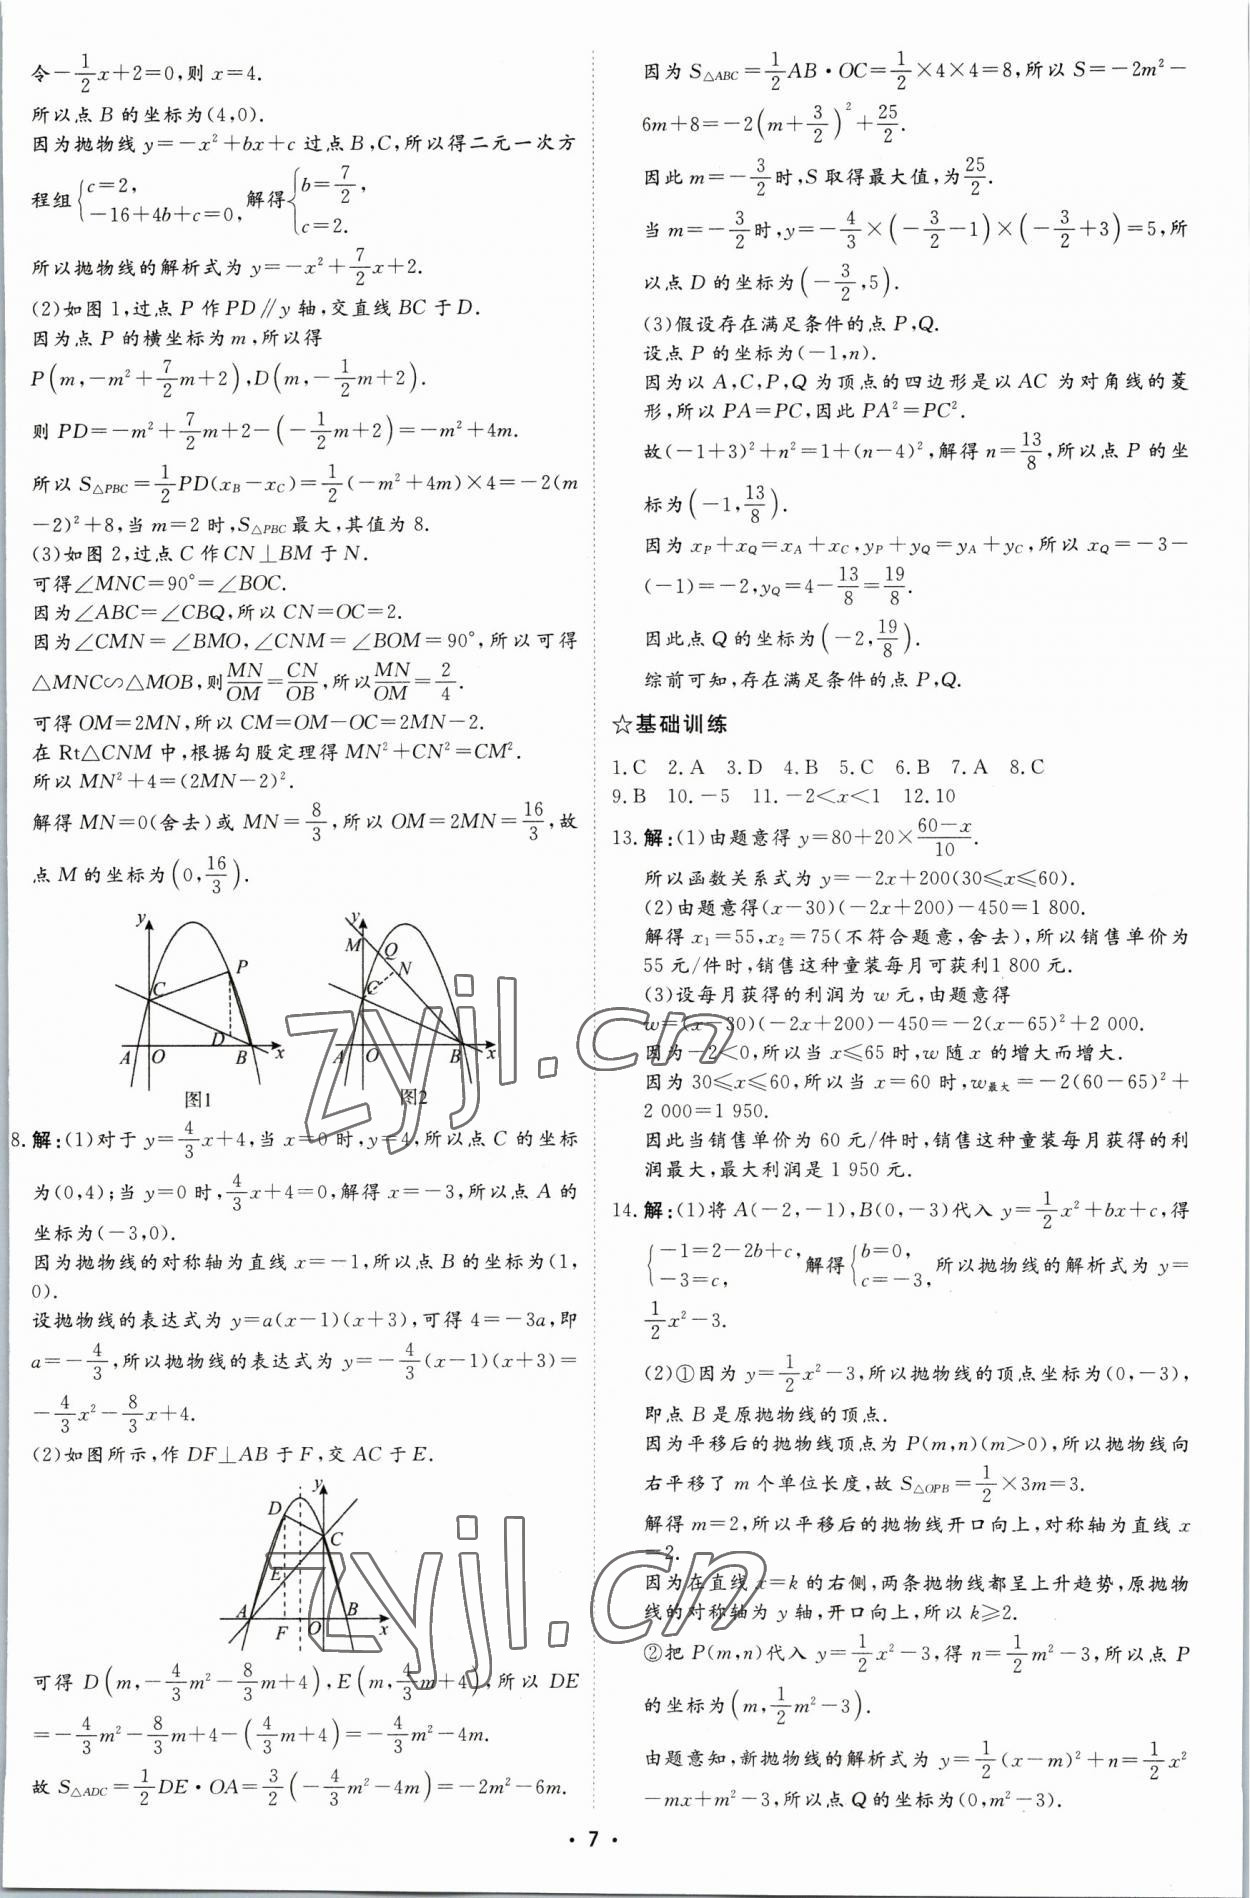 令-\frac{1}{2}x+2=0,则 x=4.
所以点 B 的坐标为(4,0).
因为抛物线 y=-x²+bx+c 过点 B,C,所以得二元一次方
程组{c=2, -16+4b+c=0, 解得{b=\frac{7}{2}, c=2.
所以抛物线的解析式为 y=-x²+\frac{7}{2}x+2.
(2)如图 1,过点 P 作 PD∥y 轴,交直线 BC 于 D.
因为点 P 的横坐标为 m,所以得
P(m,-m²+\frac{7}{2}m+2),D(m,-\frac{1}{2}m+2).
则 PD=-m²+\frac{7}{2}m+2-(-\frac{1}{2}m+2)=-m²+4m.
所以 S△PBC=\frac{1}{2}PD(x_B-x_C)=\frac{1}{2}(-m²+4m)×4=-2(m
-2)²+8,当 m=2 时,S△PBC最大,其值为 8.
(3)如图 2,过点 C 作 CN⊥BM 于 N.
可得∠MNC=90°=∠BOC.
因为∠ABC=∠CBQ,所以 CN=OC=2.
因为∠CMN=∠BMO,∠CNM=∠BOM=90°,所以可得
△MNC∽△MOB,则\frac{MN}{OM}=\frac{CN}{OB},所以\frac{MN}{OM}=\frac{2}{4}.
可得 OM=2MN,所以 CM=OM-OC=2MN-2.
在 Rt△CNM 中,根据勾股定理得 MN²+CN²=CM².
所以 MN²+4=(2MN-2)².
解得 MN=0(舍去)或 MN=\frac{8}{3},所以 OM=2MN=\frac{16}{3},故
点 M 的坐标为(0,\frac{16}{3}).
y C P A O D B x
图1
y M Q N C A O B x
图2
8.解:(1)对于 y=\frac{4}{3}x+4,当 x=0 时,y=4,所以点 C 的坐标
为(0,4);当 y=0 时,\frac{4}{3}x+4=0,解得 x=-3,所以点 A 的
坐标为(-3,0).
因为抛物线的对称轴为直线 x=-1,所以点 B 的坐标为(1,
0).
设抛物线的表达式为 y=a(x-1)(x+3),可得 4=-3a,即
a=-\frac{4}{3},所以抛物线的表达式为 y=-\frac{4}{3}(x-1)(x+3)=
-\frac{4}{3}x²-\frac{8}{3}x+4.
(2)如图所示,作 DF⊥AB 于 F,交 AC 于 E.
y D C E A F O B x
可得 D(m,-\frac{4}{3}m²-\frac{8}{3}m+4),E(m,\frac{4}{3}m+4),所以 DE
=-\frac{4}{3}m²-\frac{8}{3}m+4-(\frac{4}{3}m+4)=-\frac{4}{3}m²-4m.
故 S△ADC=\frac{1}{2}DE·OA=\frac{3}{2}(-\frac{4}{3}m²-4m)=-2m²-6m.
因为 S△ABC=\frac{1}{2}AB·OC=\frac{1}{2}×4×4=8,所以 S=-2m²-
6m+8=-2(m+\frac{3}{2})²+\frac{25}{2}.
因此 m=-\frac{3}{2}时,S 取得最大值,为\frac{25}{2}.
当 m=-\frac{3}{2}时,y=-\frac{4}{3}×(-\frac{3}{2}-1)×(-\frac{3}{2}+3)=5,所
以点 D 的坐标为(-\frac{3}{2},5).
(3)假设存在满足条件的点 P,Q.
设点 P 的坐标为(-1,n).
因为以 A,C,P,Q 为顶点的四边形是以 AC 为对角线的菱
形,所以 PA=PC,因此 PA²=PC².
故(-1+3)²+n²=1+(n-4)²,解得 n=\frac{13}{8},所以点 P 的坐
标为(-1,\frac{13}{8}).
因为 x_P+x_Q=x_A+x_C,y_P+y_Q=y_A+y_C,所以 x_Q=-3-
(-1)=-2,y_Q=4-\frac{13}{8}=\frac{19}{8}.
因此点 Q 的坐标为(-2,\frac{19}{8}).
综前可知,存在满足条件的点 P,Q.
☆基础训练
1.C 2.A 3.D 4.B 5.C 6.B 7.A 8.C
9.B 10.-5 11.-2<x<1 12.10
13.解:(1)由题意得 y=80+20×\frac{60-x}{10}.
所以函数关系式为 y=-2x+200(30≤x≤60).
(2)由题意得(x-30)(-2x+200)-450=1 800.
解得 x₁=55,x₂=75(不符合题意,舍去),所以销售单价为
55 元/件时,销售这种童装每月可获利1 800 元.
(3)设每月获得的利润为 w 元,由题意得
w=(x-30)(-2x+200)-450=-2(x-65)²+2 000.
因为-2<0,所以当 x≤65 时,w 随 x 的增大而增大.
因为 30≤x≤60,所以当 x=60 时,w最大=-2(60-65)²+
2 000=1 950.
因此当销售单价为 60 元/件时,销售这种童装每月获得的利
润最大,最大利润是 1 950 元.
14.解:(1)将 A(-2,-1),B(0,-3)代入 y=\frac{1}{2}x²+bx+c,得
{-1=2-2b+c, -3=c, 解得{b=0, c=-3, 所以抛物线的解析式为 y=
\frac{1}{2}x²-3.
(2)①因为 y=\frac{1}{2}x²-3,所以抛物线的顶点坐标为(0,-3),
即点 B 是原抛物线的顶点.
因为平移后的抛物线顶点为 P(m,n)(m>0),所以抛物线向
右平移了 m 个单位长度,故 S△OPB=\frac{1}{2}×3m=3.
解得 m=2,所以平移后的抛物线开口向上,对称轴为直线 x
=2.
因为在直线 x=k 的右侧,两条抛物线都呈上升趋势,原抛物
线的对称轴为 y 轴,开口向上,所以 k≥2.
②把 P(m,n)代入 y=\frac{1}{2}x²-3,得 n=\frac{1}{2}m²-3,所以点 P
的坐标为(m,\frac{1}{2}m²-3).
由题意知,新抛物线的解析式为 y=\frac{1}{2}(x-m)²+n=\frac{1}{2}x²
-mx+m²-3,所以点 Q 的坐标为(0,m²-3).
· 7 ·
zyjl.cn
zyjl.cn